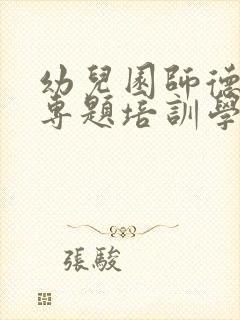 幼兒園師德
專題培訓學
張駿